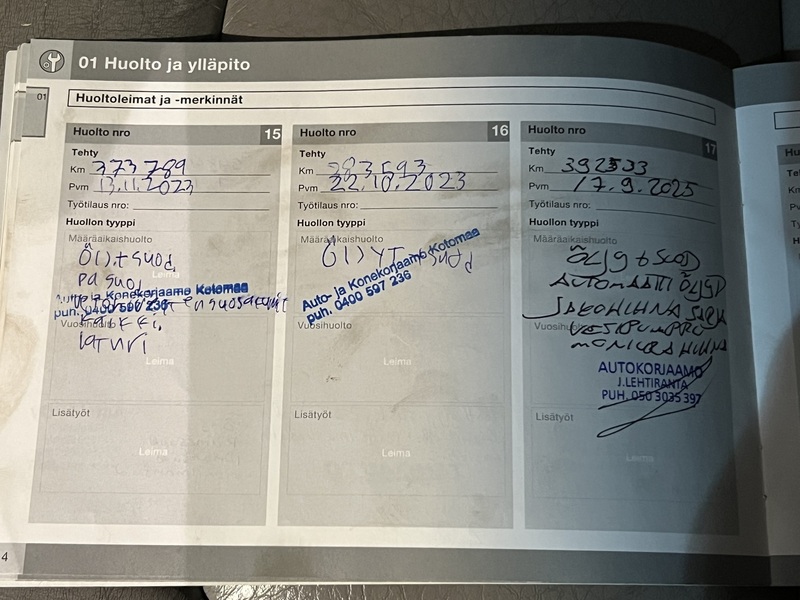 01 Huolto ja ylläpito
01
Huoltoleimat ja -merkinnät
Huolto nro 15
Tehty
Km 373 789
Pvm 13.11.2023
Työtilaus nro:
Huollon tyyppi
Määräaikaishuolto
Öl)+suod
pa suod
Leima
Auto- ja Konekorjaamo Kotomaa
puh. 0400 597 236
Vuosihuolto
laturi
Leima
Lisätyöt
Leima
Huolto nro 16
Tehty
Km 383 593
Pvm 22.10.2023
Työtilaus nro:
Huollon tyyppi
Määräaikaishuolto
Öl)yt suod
Auto- ja Konekorjaamo Kotomaa
puh. 0400 597 236
Vuosihuolto
Leima
Lisätyöt
Leima
Huolto nro 17
Tehty
Km 392533
Pvm 17.9.2025
Työtilaus nro:
Huollon tyyppi
Määräaikaishuolto
ÖLJY + SUOD
AUTOMAATTI ÖLJYT
JAKOHIHNA SARJA
Vuosihuolto
VESIPUMPPU
MONIURAHIHNA
AUTOKORJAAMO
J.LEHTIRANTA
PUH. 050 3035 397
Lisätyöt
Leima
4